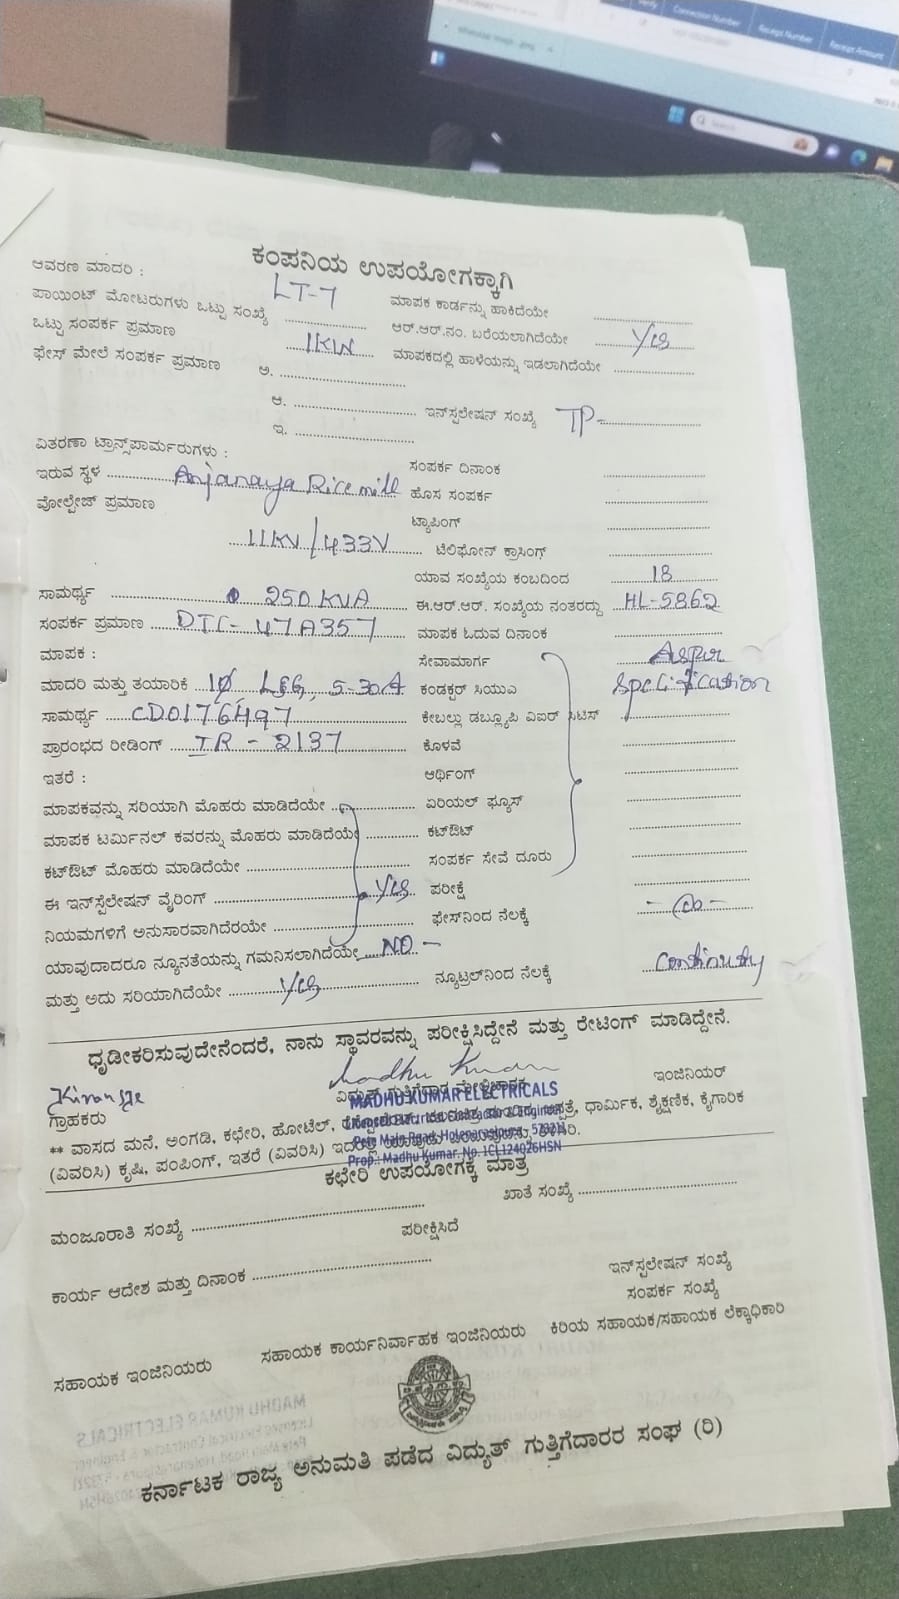 Connection Number
Receipt Number
Receipt Amount
Search
ಕಂಪನಿಯ ಉಪಯೋಗಕ್ಕಾಗಿ
ಆವರಣ ಮಾದರಿ :
LT-7
ಪಾಯಿಂಟ್ ಮೋಟರುಗಳು ಒಟ್ಟು ಸಂಖ್ಯೆ
ಮಾಪಕ ಕಾರ್ಡನ್ನು ಹಾಕಿದೆಯೇ
ಒಟ್ಟು ಸಂಪರ್ಕ ಪ್ರಮಾಣ 1KW
ಆರ್.ಆರ್.ನಂ. ಬರೆಯಲಾಗಿದೆಯೇ Yes
ಫೇಸ್ ಮೇಲೆ ಸಂಪರ್ಕ ಪ್ರಮಾಣ ಅ.
ಮಾಪಕದಲ್ಲಿ ಹಾಳೆಯನ್ನು ಇಡಲಾಗಿದೆಯೇ
ಆ.
ಇನ್‌ಸ್ಪಲೇಷನ್ ಸಂಖ್ಯೆ TP-
ಇ.
ವಿತರಣಾ ಟ್ರಾನ್ಸ್‌ಪಾರ್ಮರುಗಳು :
ಸಂಪರ್ಕ ದಿನಾಂಕ
ಇರುವ ಸ್ಥಳ Anjanaya Rice mill
ಹೊಸ ಸಂಪರ್ಕ
ವೋಲ್ಟೇಜ್ ಪ್ರಮಾಣ
ಟ್ಯಾಪಿಂಗ್
11KV/433V
ಟೆಲಿಫೋನ್ ಕ್ರಾಸಿಂಗ್
ಯಾವ ಸಂಖ್ಯೆಯ ಕಂಬದಿಂದ 18
ಸಾಮರ್ಥ್ಯ 250 KVA
ಈ.ಆರ್.ಆರ್. ಸಂಖ್ಯೆಯ ನಂತರದ್ದು HL-5862
ಸಂಪರ್ಕ ಪ್ರಮಾಣ DTC-47A357
ಮಾಪಕ ಓದುವ ದಿನಾಂಕ
ಮಾಪಕ :
ಸೇವಾಮಾರ್ಗ Asper
ಮಾದರಿ ಮತ್ತು ತಯಾರಿಕೆ 1Ø L&G, 5-30A
ಕಂಡಕ್ಟರ್ ಸಿಯುಎ Specification
ಸಾಮರ್ಥ್ಯ CD0176497
ಕೇಬಲ್ಲು ಡಬ್ಲ್ಯೂಪಿ ಎಐರ್ ಸಿಟಿಸ್
ಪ್ರಾರಂಭದ ರೀಡಿಂಗ್ IR - 2137
ಕೊಳವೆ
ಇತರೆ :
ಆರ್ಥಿಂಗ್
ಮಾಪಕವನ್ನು ಸರಿಯಾಗಿ ಮೊಹರು ಮಾಡಿದೆಯೇ
ಏರಿಯಲ್ ಫ್ಯೂಸ್
ಮಾಪಕ ಟರ್ಮಿನಲ್ ಕವರನ್ನು ಮೊಹರು ಮಾಡಿದೆಯೇ
ಕಟ್‌ಔಟ್
ಕಟ್‌ಔಟ್ ಮೊಹರು ಮಾಡಿದೆಯೇ
ಸಂಪರ್ಕ ಸೇವೆ ದೂರು
ಈ ಇನ್‌ಸ್ಪೆಲೇಷನ್ ವೈರಿಂಗ್ Yes
ಪರೀಕ್ಷೆ
ನಿಯಮಗಳಿಗೆ ಅನುಸಾರವಾಗಿದೆರಯೇ
ಫೇಸ್‌ನಿಂದ ನೆಲಕ್ಕೆ
ಯಾವುದಾದರೂ ನ್ಯೂನತೆಯನ್ನು ಗಮನಿಸಲಾಗಿದೆಯೇ NO -
ಮತ್ತು ಅದು ಸರಿಯಾಗಿದೆಯೇ Yes
ನ್ಯೂಟ್ರಲ್‌ನಿಂದ ನೆಲಕ್ಕೆ Continuity
ಧೃಡೀಕರಿಸುವುದೇನೆಂದರೆ, ನಾನು ಸ್ಥಾವರವನ್ನು ಪರೀಕ್ಷಿಸಿದ್ದೇನೆ ಮತ್ತು ರೇಟಿಂಗ್ ಮಾಡಿದ್ದೇನೆ.
Madhu Kumar
ಗ್ರಾಹಕರು
ವಿದ್ಯುತ್ ಗುತ್ತಿಗೆದಾರ
ಇಂಜಿನಿಯರ್
MADHU KUMAR ELECTRICALS
Licensed Electrical Contractor & Engineer
Pete Main Road, Holenarasipura - 573211
Prop.: Madhu Kumar. No. 1CL124026HSN
** ವಾಸದ ಮನೆ, ಅಂಗಡಿ, ಕಛೇರಿ, ಹೋಟೆಲ್, ಆಸ್ಪತ್ರೆ, ಧಾರ್ಮಿಕ, ಶೈಕ್ಷಣಿಕ, ಕೈಗಾರಿಕ
(ವಿವರಿಸಿ) ಕೃಷಿ, ಪಂಪಿಂಗ್, ಇತರೆ (ವಿವರಿಸಿ)
ಕಛೇರಿ ಉಪಯೋಗಕ್ಕೆ ಮಾತ್ರ
ಮಂಜೂರಾತಿ ಸಂಖ್ಯೆ
ಖಾತೆ ಸಂಖ್ಯೆ
ಪರೀಕ್ಷಿಸಿದೆ
ಕಾರ್ಯ ಆದೇಶ ಮತ್ತು ದಿನಾಂಕ
ಇನ್‌ಸ್ಪಲೇಷನ್ ಸಂಖ್ಯೆ
ಸಂಪರ್ಕ ಸಂಖ್ಯೆ
ಸಹಾಯಕ ಇಂಜಿನಿಯರು
ಸಹಾಯಕ ಕಾರ್ಯನಿರ್ವಾಹಕ ಇಂಜಿನಿಯರು
ಕಿರಿಯ ಸಹಾಯಕ/ಸಹಾಯಕ ಲೆಕ್ಕಾಧಿಕಾರಿ
ಕರ್ನಾಟಕ ರಾಜ್ಯ ಅನುಮತಿ ಪಡೆದ ವಿದ್ಯುತ್ ಗುತ್ತಿಗೆದಾರರ ಸಂಘ (ರಿ)